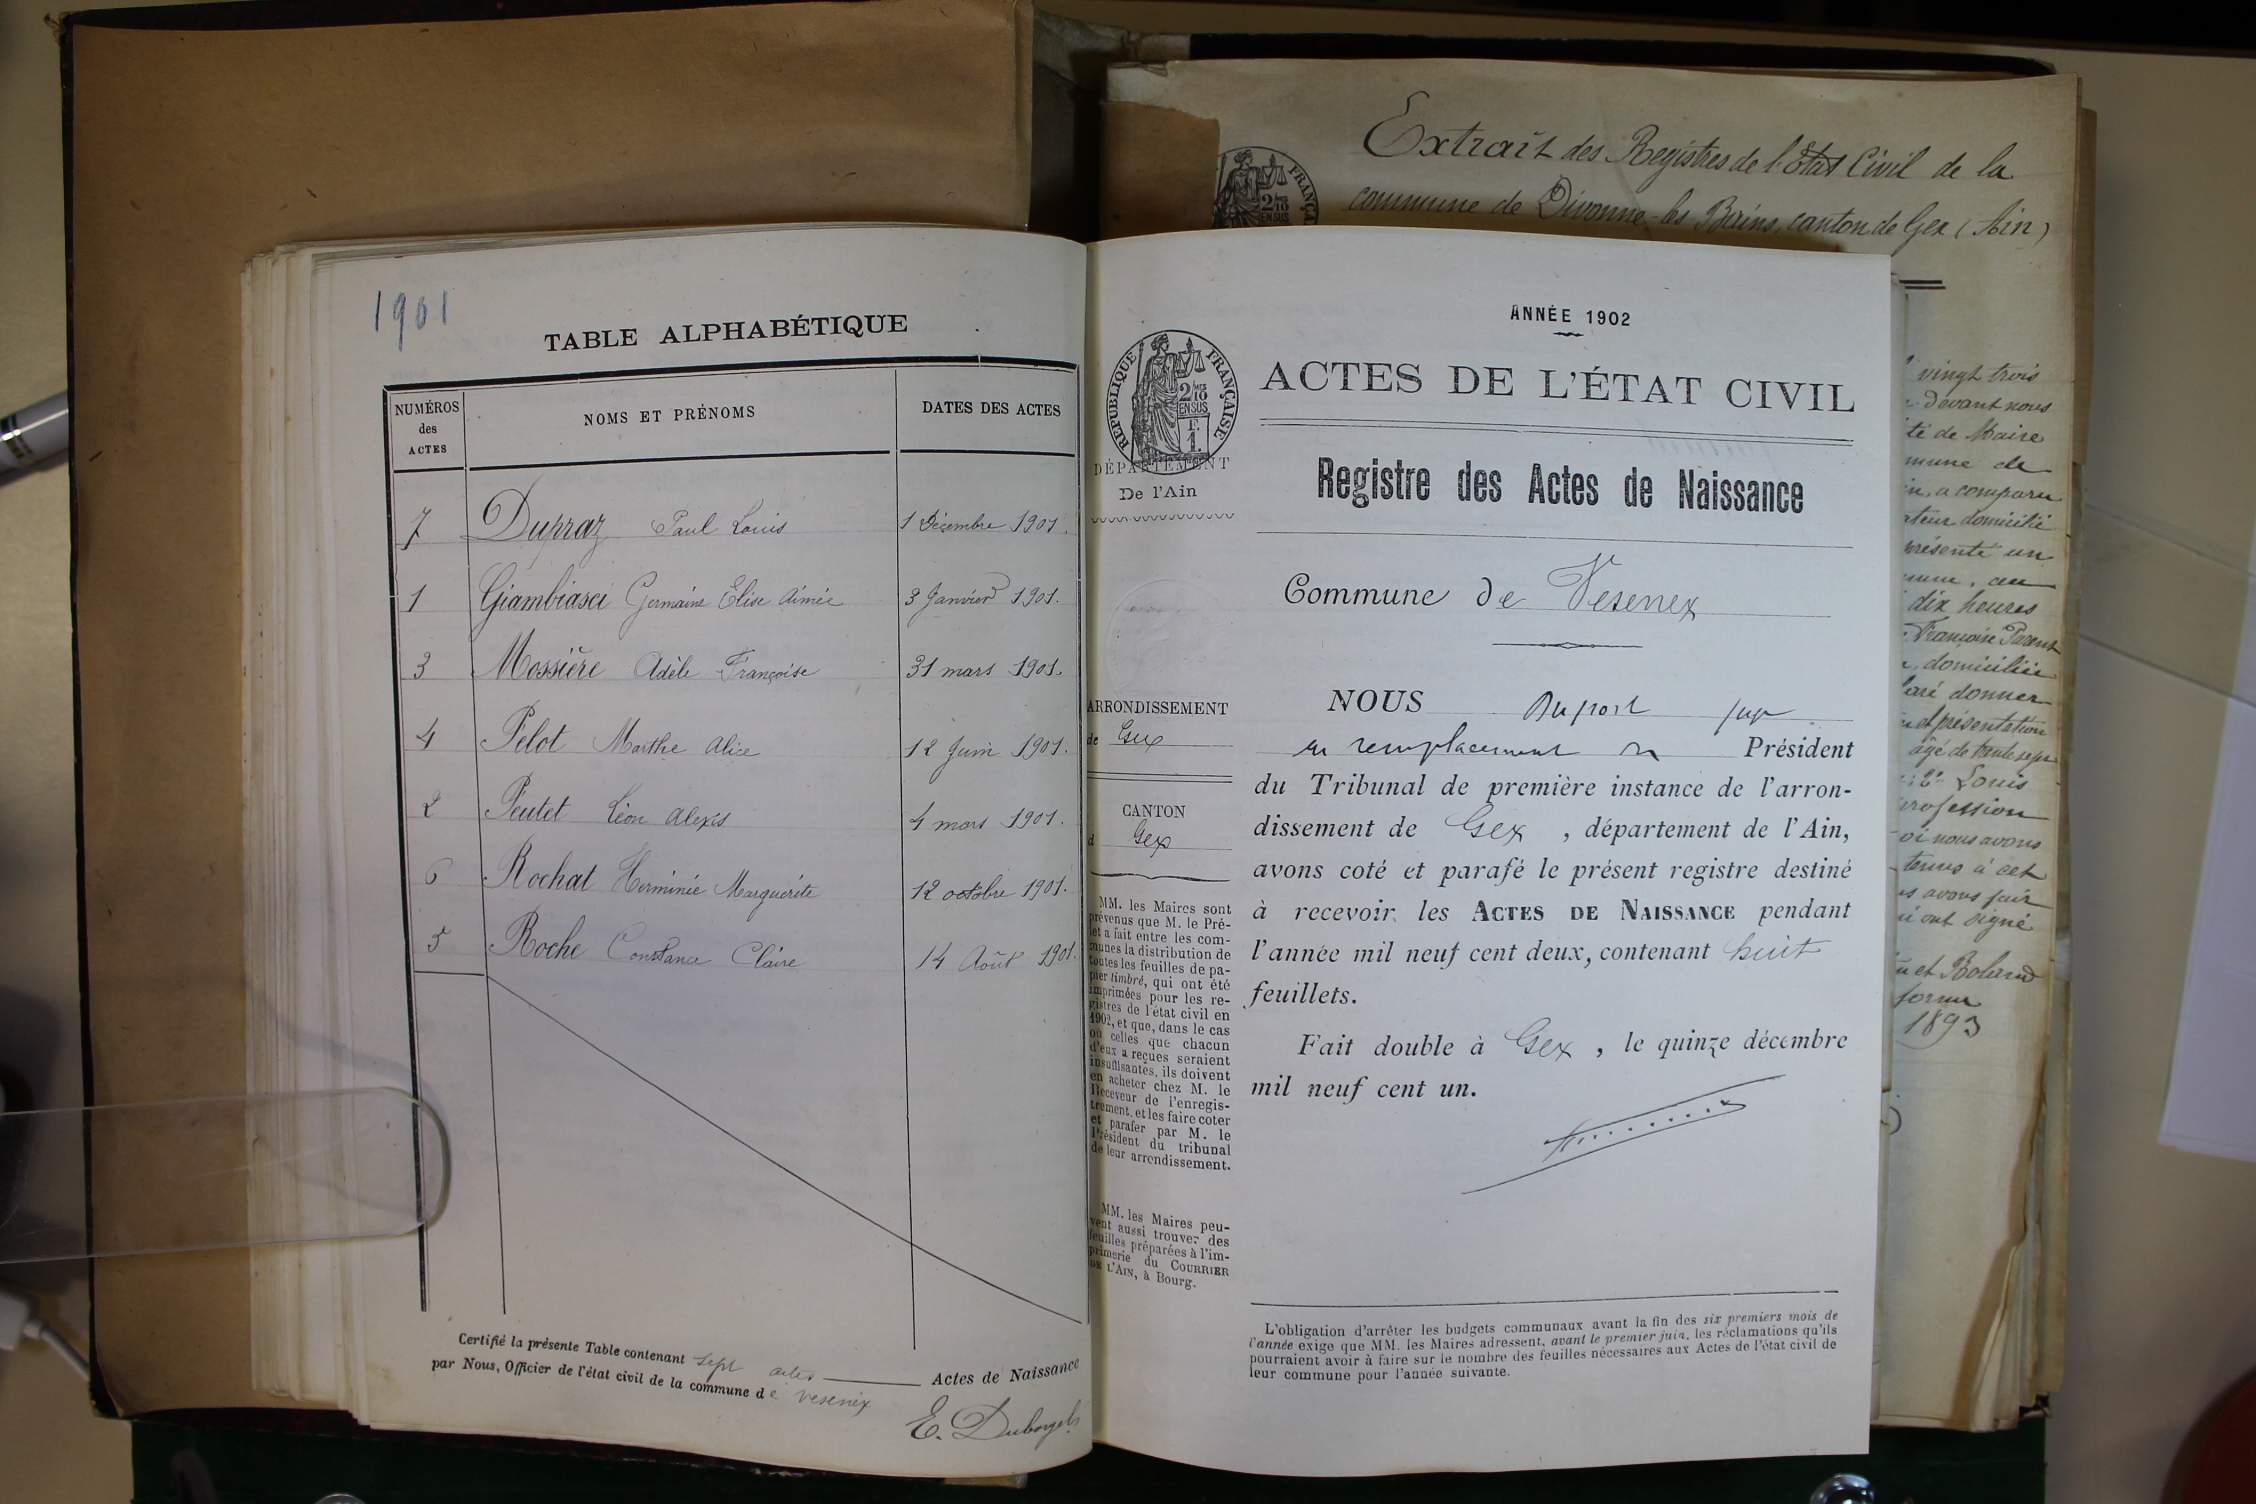 1901
TABLE ALPHABÉTIQUE
NUMÉROS
des
ACTES
NOMS ET PRÉNOMS
DATES DES ACTES
7 Dupraz Paul Louis 1 Décembre 1901.
1 Giambiasci Germaine Elise Aimée 3 Janvier 1901.
3 Mossière Adèle Françoise 31 mars 1901.
4 Pelot Marthe Alice 12 Juin 1901.
2 Peutet Léon Alexis 4 mars 1901.
6 Rochat Herminie Marguerite 12 octobre 1901.
5 Roche Constance Claire 14 Août 1901.
Certifié la présente Table contenant sept actes Actes de Naissance
par Nous, Officier de l'état civil de la commune de Vesenex
E.
REPUBLIQUE FRANÇAISE
2/10
EN SUS
F.
1
DÉPARTEMENT
De l'Ain
ARRONDISSEMENT
de Gex
CANTON
d Gex
MM. les Maires sont
prévenus que M. le Pré-
fet a fait entre les com-
munes la distribution de
toutes les feuilles de pa-
pier timbré, qui ont été
imprimées pour les re-
gistres de l'état civil en
1902, et que, dans le cas
où celles que chacun
d'eux a reçues seraient
insuffisantes, ils doivent
en acheter chez M. le
Receveur de l'enregis-
trement, et les faire coter
et parafer par M. le
Président du tribunal
de leur arrondissement.
MM. les Maires peu-
vent aussi trouver des
feuilles préparées à l'im-
primerie du COURRIER
DE L'AIN, à Bourg.
ANNÉE 1902
ACTES DE L'ÉTAT CIVIL
Registre des Actes de Naissance
Commune de Vesenex
NOUS Duport juge
en remplacement du Président
du Tribunal de première instance de l'arron-
dissement de Gex, département de l'Ain,
avons coté et parafé le présent registre destiné
à recevoir les ACTES DE NAISSANCE pendant
l'année mil neuf cent deux, contenant huit
feuillets.
Fait double à Gex, le quinze décembre
mil neuf cent un.
L'obligation d'arrêter les budgets communaux avant la fin des six premiers mois de
l'année exige que MM. les Maires adressent, avant le premier juin, les réclamations qu'ils
pourraient avoir à faire sur le nombre des feuilles nécessaires aux Actes de l'état civil de
leur commune pour l'année suivante.
Extrait des Registres de l'Etat Civil de la
commune de Divonne-les Bains, canton de Gex (Ain)
FRANÇA
2/10
EN SUS
vingt trois
devant nous
té de Maire
mune de
in, a comparu
ateur domicilié
présenté un
au
dix heures
Françoise
domiciliée
laré donner
et présentation
agé de trente sept
2° Louis
profession
oi nous avons
tenus à cet
us avons fait
ui ont signé
et Roland
forme
1893